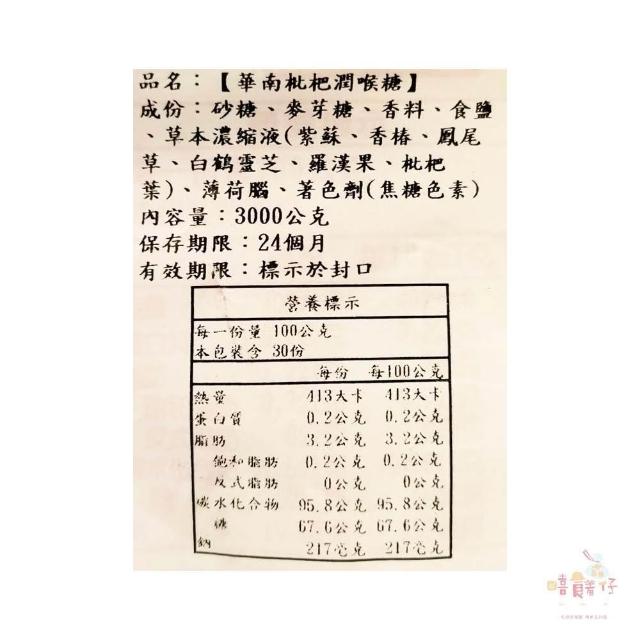 品名：【華南枇杷潤喉糖】
成份：砂糖、麥芽糖、香料、食鹽
、草本濃缩液(紫蘇、香椿、鳳尾
草、白鶴靈芝、羅漢果、枇杷
葉)、薄荷腦、著色劑(焦糖色素)
內容量：3000公克
保存期限：24個月
有效期限：標示於封口
營養標示
每一份量 100公克
本包裝含 30份
每份 每100公克
熱量 413大卡 413大卡
蛋白質 0.2公克 0.2公克
脂肪 3.2公克 3.2公克
飽和脂肪 0.2公克 0.2公克
反式脂肪 0公克 0公克
碳水化合物 95.8公克 95.8公克
糖 67.6公克 67.6公克
鈉 217毫克 217毫克